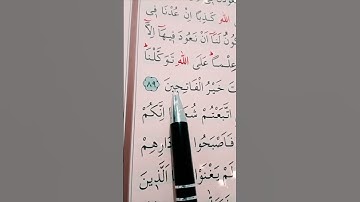 اللهِ كَذِبًا اِنْ عُدْنَا فٖى
لَنَٓا اَنْ نَعُودَ فٖيهَٓا اِلَّٓا
عِلْمًا عَلَى اللهِ تَوَكَّلْنَا
خَيْرُ الْفَاتِحٖينَ ﴿٨٩﴾
اتَّبَعْتُمْ اِنَّكُمْ
فَاَصْبَحُوا دَارِهِمْ
لَمْ يَغْنَوْا اَلَّذٖينَ